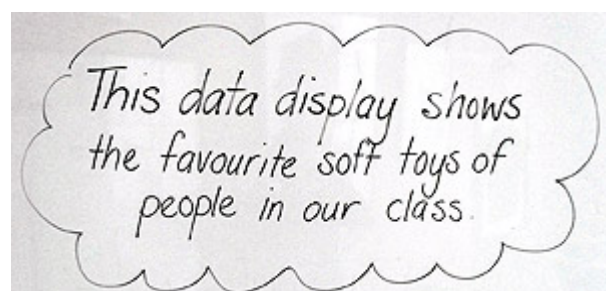 This data display shows
the favourite soft toys of
people in our class.